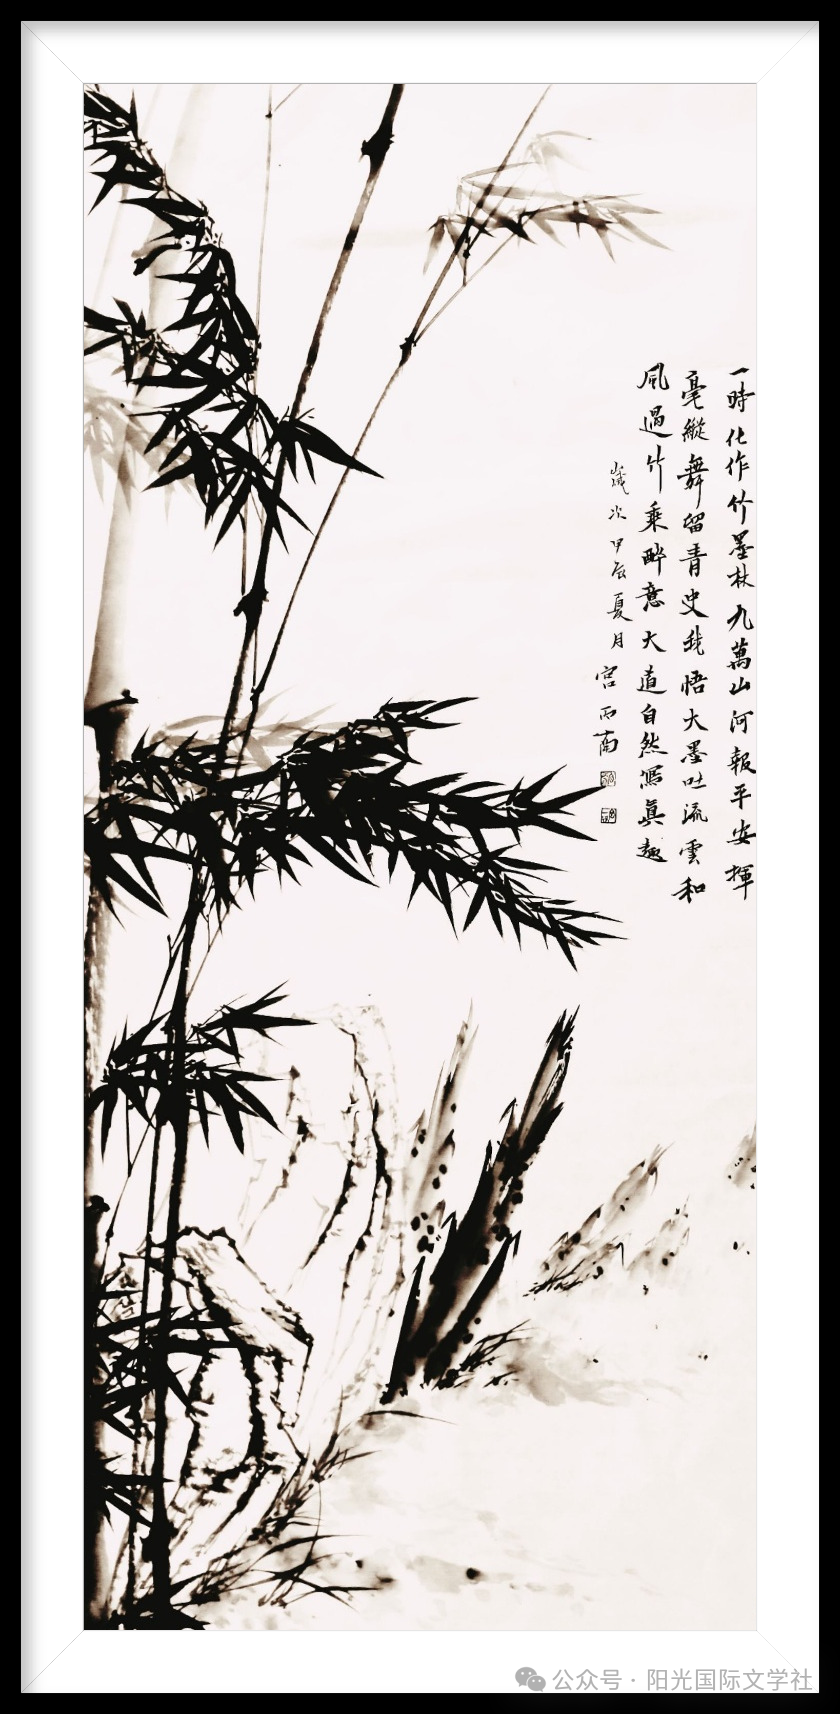 一時化作竹墨林九萬山河報平安揮
毫縱舞留青史我悟大墨吐流雲和
風過竹乘醉意大道自然寫真趣
歲次甲辰夏月
宮丙南
公众号 · 阳光国际文学社